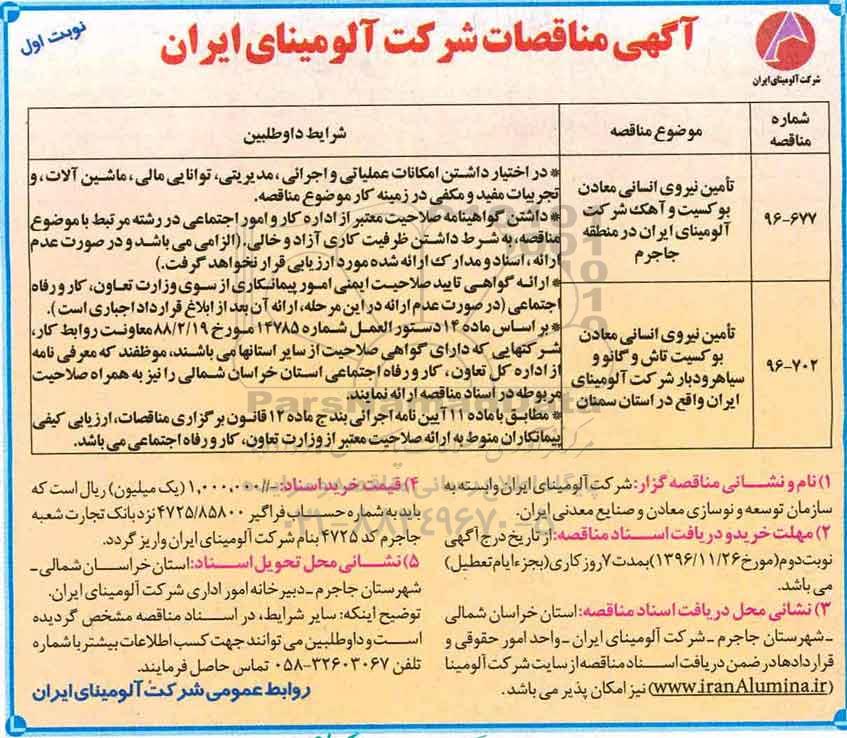 آگهی مناقصات شرکت آلومینای ایران
نوبت اول
شرکت آلومینای ایران
شماره مناقصه
موضوع مناقصه
شرایط داوطلبین
۹۶-۶۷۷
تأمین نیروی انسانی معادن
بوکسیت و آهک شرکت
آلومینای ایران در منطقه
جاجرم
۹۶-۷۰۲
تأمین نیروی انسانی معادن
بوکسیت تاش و گانو و
سیاهرودبار شرکت آلومینای
ایران واقع در استان سمنان
* در اختیار داشتن امکانات عملیاتی و اجرائی، مدیریتی، توانایی مالی، ماشین آلات، و
تجربیات مفید و مکفی در زمینه کار موضوع مناقصه.
* داشتن گواهینامه صلاحیت معتبر از اداره کار و امور اجتماعی در رشته مرتبط با موضوع
مناقصه، به شرط داشتن ظرفیت کاری آزاد و خالی. (الزامی می باشد و در صورت عدم
ارائه، اسناد و مدارک ارائه شده مورد ارزیابی قرار نخواهد گرفت.)
* ارائه گواهی تایید صلاحیت ایمنی امور پیمانکاری از سوی وزارت تعاون، کار و رفاه
اجتماعی (در صورت عدم ارائه در این مرحله، ارائه آن بعد از ابلاغ قرارداد اجباری است).
* بر اساس ماده ۱۴ دستور العمل شماره ۱۴۷۸۵ مورخ ۸۸/۲/۱۹ معاونت روابط کار،
شرکتهایی که دارای گواهی صلاحیت از سایر استانها می باشند، موظفند که معرفی نامه
از اداره کل تعاون، کار و رفاه اجتماعی استان خراسان شمالی را نیز به همراه صلاحیت
مربوطه در اسناد مناقصه ارائه نمایند.
* مطابق با ماده ۱۱ آیین نامه اجرائی بند ج ماده ۱۲ قانون برگزاری مناقصات، ارزیابی کیفی
پیمانکاران منوط به ارائه صلاحیت معتبر از وزارت تعاون، کار و رفاه اجتماعی می باشد.
۱) نام و نشانی مناقصه گزار: شرکت آلومینای ایران وابسته به
سازمان توسعه و نوسازی معادن و صنایع معدنی ایران.
۲) مهلت خرید و دریافت اسناد مناقصه: از تاریخ درج آگهی
نوبت دوم (مورخ ۱۳۹۶/۱۱/۲۶) بمدت ۷ روز کاری (بجز ایام تعطیل)
می باشد.
۳) نشانی محل دریافت اسناد مناقصه: استان خراسان شمالی
- شهرستان جاجرم - شرکت آلومینای ایران - واحد امور حقوقی و
قراردادها در ضمن دریافت اسناد مناقصه از سایت شرکت آلومینا
(www.iranAlumina.ir) نیز امکان پذیر می باشد.
۴) قیمت خرید اسناد: -/۱,۰۰۰,۰۰۰ (یک میلیون) ریال است که
باید به شماره حساب فراگیر ۴۷۲۵/۸۵۸۰۰ نزد بانک تجارت شعبه
جاجرم کد ۴۷۲۵ بنام شرکت آلومینای ایران واریز گردد.
۵) نشانی محل تحویل اسناد: استان خراسان شمالی -
شهرستان جاجرم - دبیرخانه امور اداری شرکت آلومینای ایران.
توضیح اینکه: سایر شرایط، در اسناد مناقصه مشخص گردیده
است و داوطلبین می توانند جهت کسب اطلاعات بیشتر با شماره
تلفن ۳۲۶۰۳۰۶۷-۰۵۸ تماس حاصل فرمایند.
روابط عمومی شرکت آلومینای ایران
۰۲۱-۸۸۳۴۹۶۷۰-۵